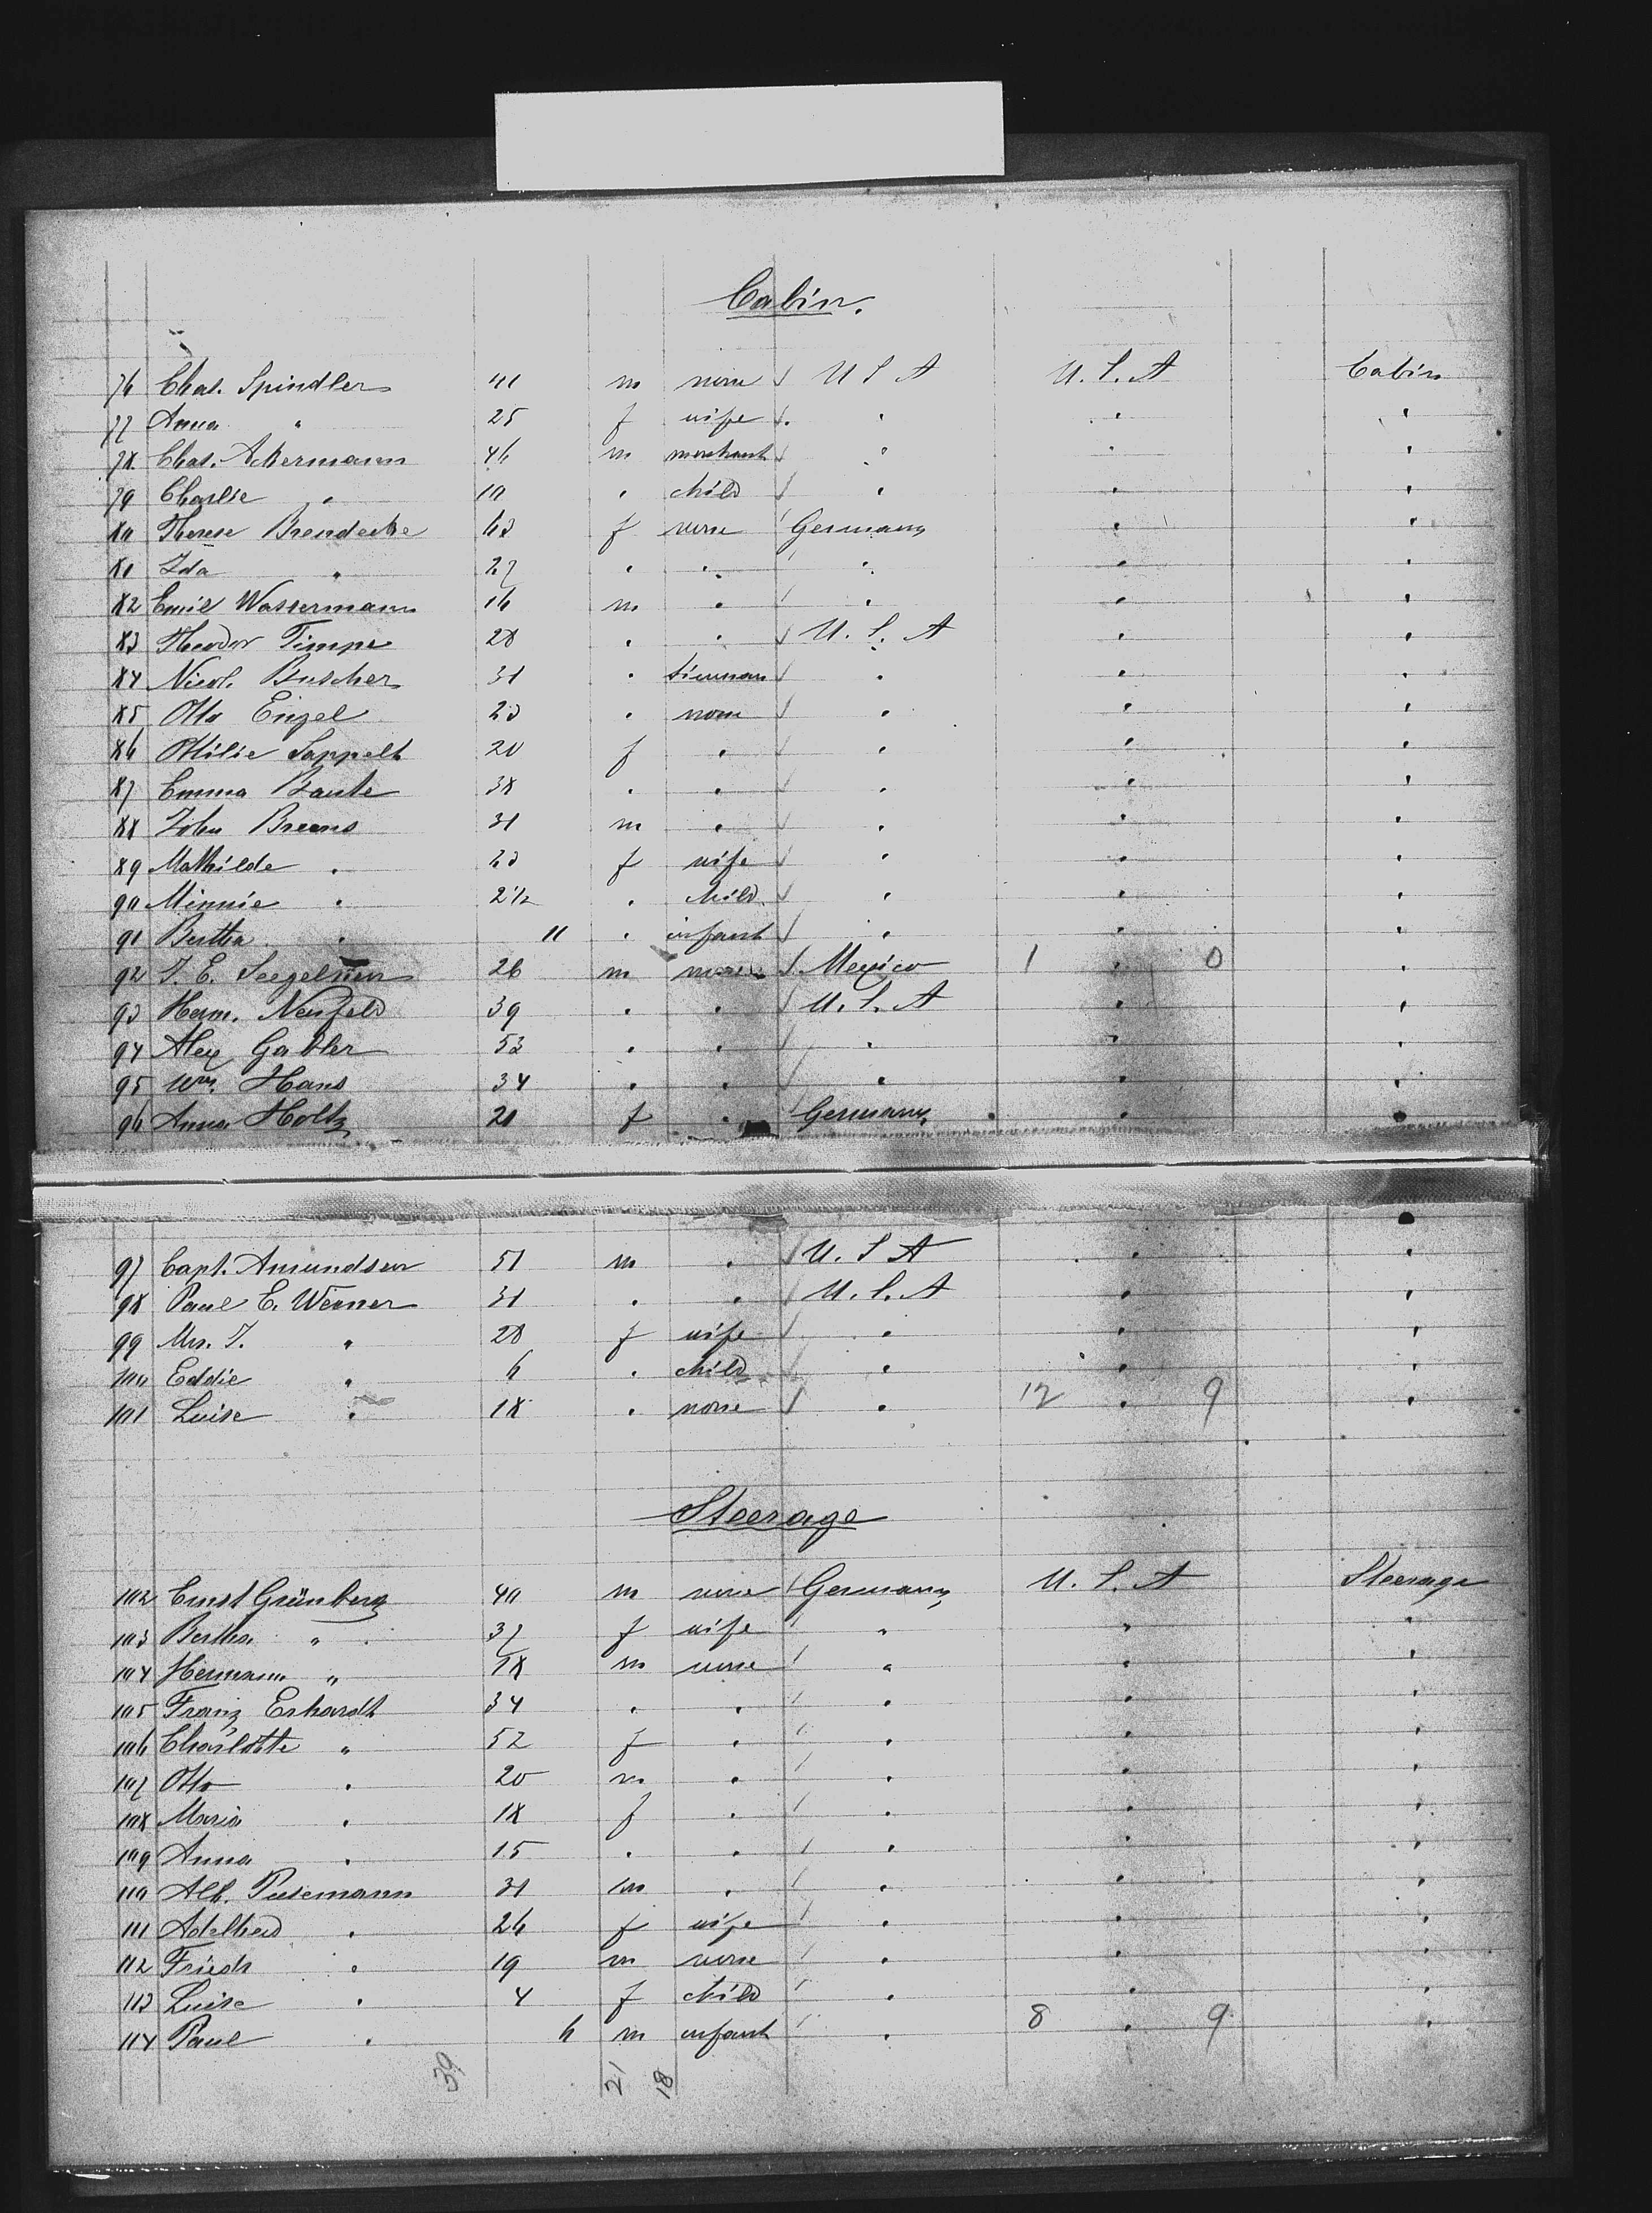 Cabin.
76 Chas. Spindler 41 m none U S A U. S. A Cabin
77 Anna " 25 f wife " " "
78 Chas. Ackermann 46 m merchant " " "
79 Charlie " 10 " child " " "
80 Therese Brendecke 63 f none Germany " "
81 Ida " 27 " " " " "
82 Emil Wassermann 16 m " " " "
83 Theodor Timpe 28 " " U. S. A " "
84 Nicol. Buscher 31 " " " "
85 Otto Engel 23 " none " " "
86 Ottilie Sappelt 20 f " " " "
87 Emma Baute 38 " " " " "
88 John Breens 31 m " " " "
89 Mathilde " 23 f wife " " "
90 Minnie " 2 1/2 " child " " "
91 Bertha " 11 " infant " " "
92 26 m none Mexico 1 " 0 "
93 Herm. Neufeld 39 " " U. S. A " "
94 Alex Gabler 53 " " " " "
95 Wm. Hans 34 " " " " "
96 Anna Holtz 21 f " Germany " "
97 Capt. Amundsen 51 m " U. S A " "
98 Paul E. Werner 31 " " U. S. A " "
99 Mrs. J. " 28 f wife " " "
100 Eddie " 6 " child " " "
101 Luise " 18 " none " 12 " 9 "
Steerage
102 Ernst Grünberg 40 m none Germany U. S. A Steerage
103 Bertha " 37 f wife " " "
104 Hermann " 18 m none " " "
105 Franz Erhardt 34 " " " " "
106 Charlotte " 52 f " " " "
107 Otto " 20 m " " " "
108 Maria " 18 f " " " "
109 Anna " 15 " " " " "
110 Alb. Pusemann 31 m " " " "
111 Adelheid " 26 f wife " " "
112 Friedr " 19 m none " " "
113 Luise " 4 f child " " "
114 Paul " 6 m infant " 8 " 9 "
39 21 18